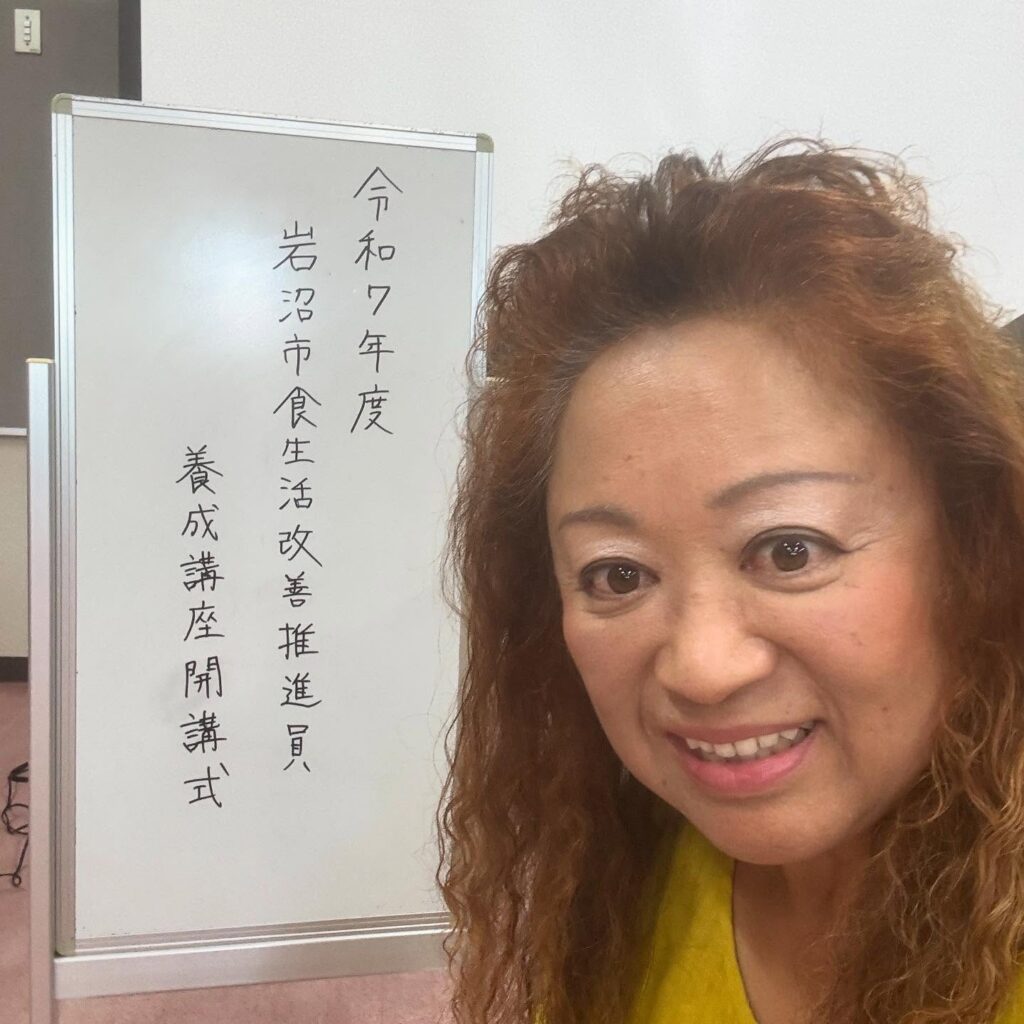 令和7年度
岩沼市食生活改善推進員
養成講座開講式